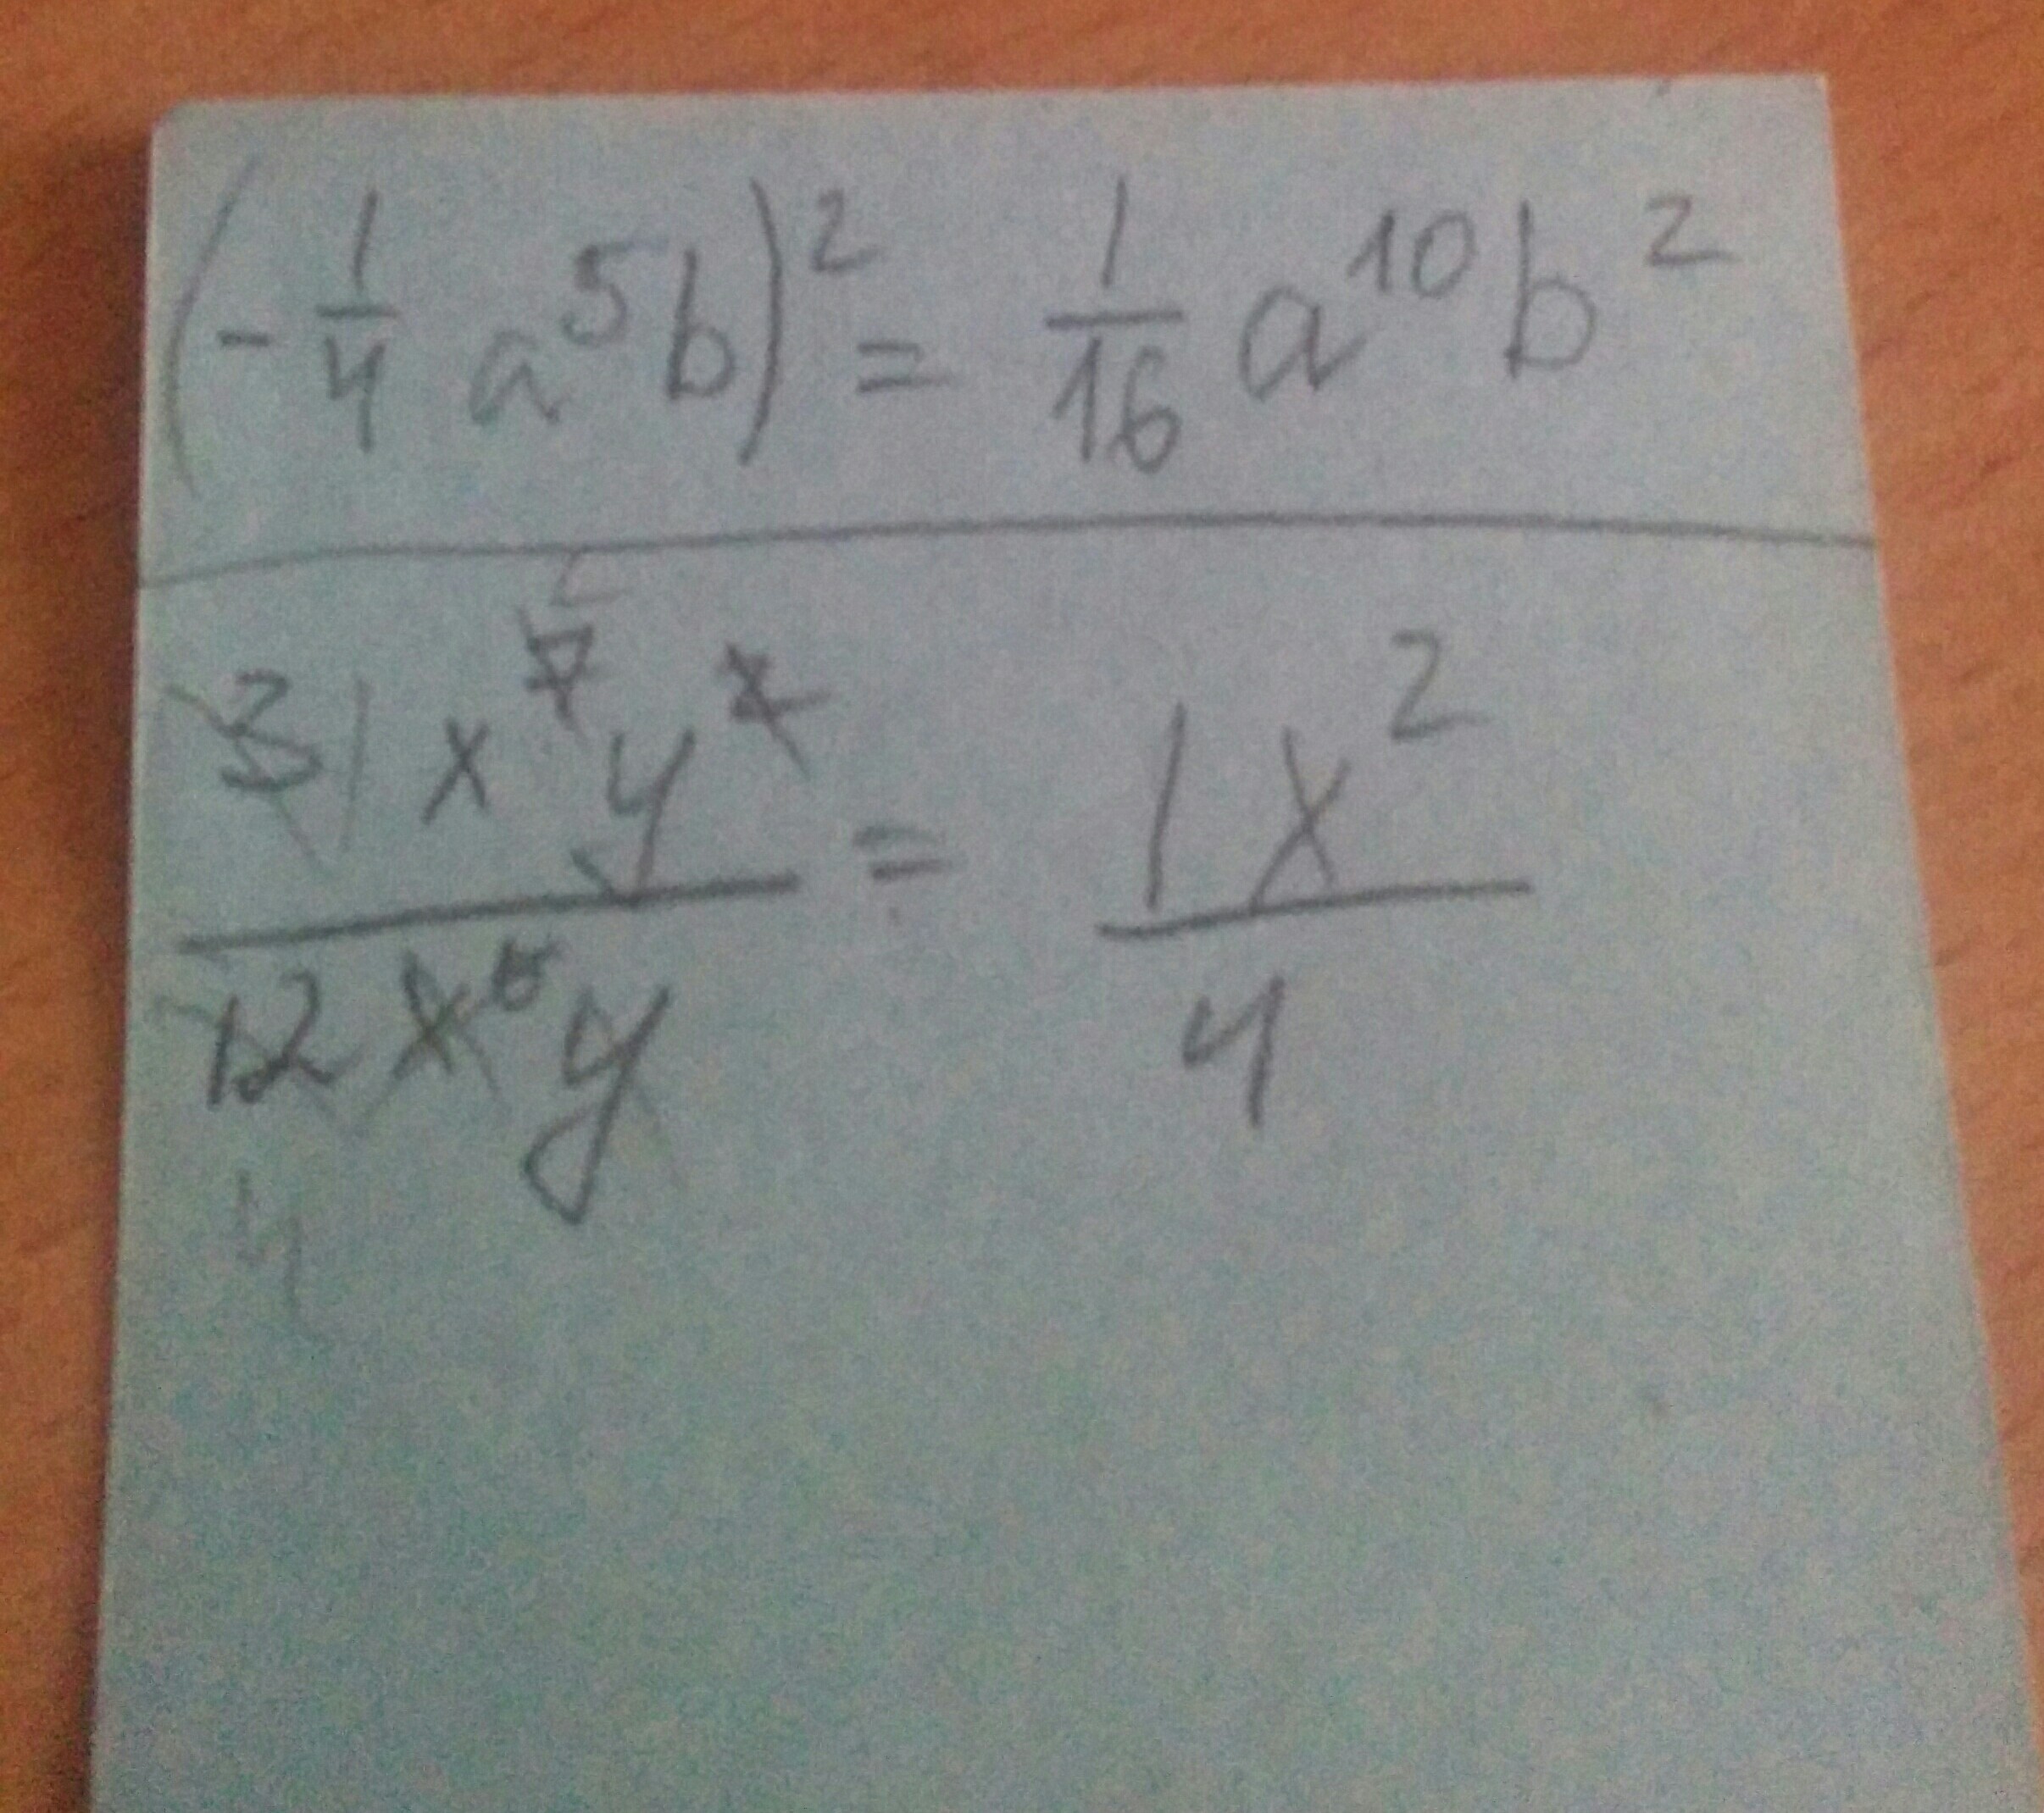 (-1/4 a⁵b)² = 1/16 a¹⁰b²
3 1 x⁷ ² y² / 12 4 x⁵ y = 1x² / 4